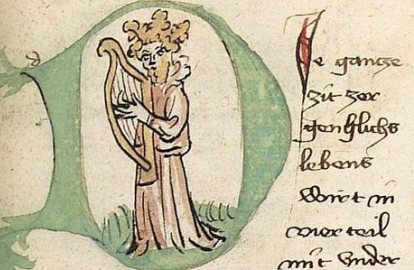 DIe gantze
zit zer
genklichs
lebens
wirt in
vier teil
mit vnder